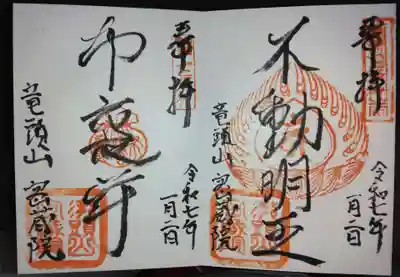 奉拝
不動明王
令和七年
一月二日
竜頭山 密蔵院
奉拝
布袋尊
令和七年
一月二日
竜頭山 密蔵院